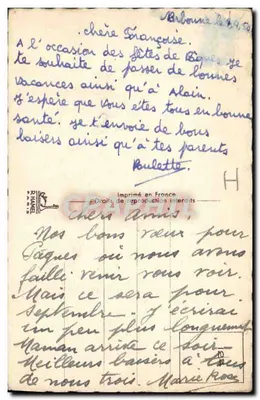 chère Françoise.
A l'occasion des fêtes de je
te souhaite de passer de bonnes
vacances ainsi qu'à Alain.
J'espère que vous êtes tous en bonne
santé. je t'envoie de bons
baisers ainsi qu'à tes parents
Paulette.
H
Imprimé en France
Droits de reproduction réservés
chers amis.
Nos bons vœux pour
Pâques où nous avons
failli venir vous voir.
Mais ce sera pour
septembre. J'écrirai
un peu plus longuement
Maman arrive ce soir
Meilleurs baisers à tous
de nous trois. Marie Rose